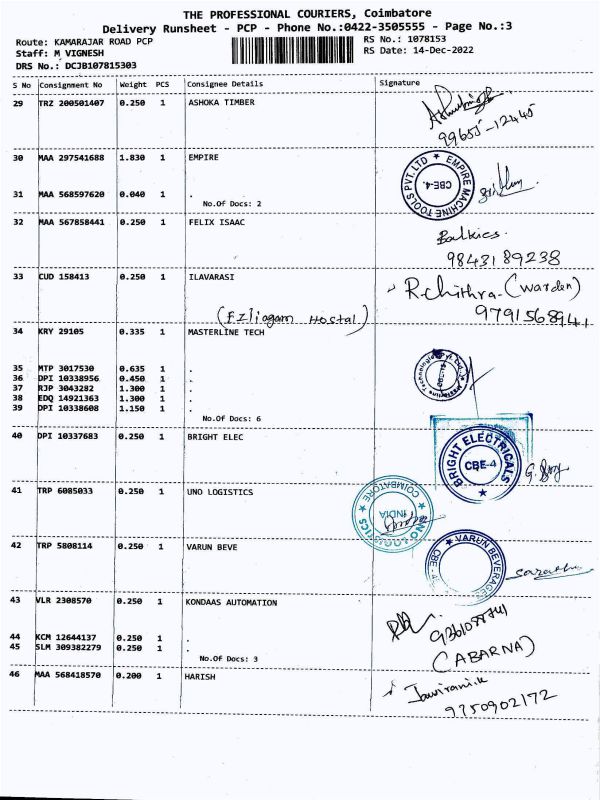 THE PROFESSIONAL COURIERS, Coimbatore
Delivery Runsheet - PCP - Phone No.:0422-3505555 - Page No.:3
Route: KAMARAJAR ROAD PCP RS No.: 1078153
Staff: M VIGNESH RS Date: 14-Dec-2022
DRS No.: DCJB107815303
S No Consignment No Weight PCS Consignee Details Signature
29 TRZ 200501407 0.250 1 ASHOKA TIMBER
99655-12445
30 MAA 297541688 1.830 1 EMPIRE
EMPIRE MACHINE TOOLS PVT.LTD ★ CBE-4.
31 MAA 568597620 0.040 1 .
No.Of Docs: 2
32 MAA 567858441 0.250 1 FELIX ISAAC
Balkies.
98431 89238
33 CUD 158413 0.250 1 ILAVARASI
R.Chithra.(Warden)
(Ezliagam Hostal) 9791568941
34 KRY 29105 0.335 1 MASTERLINE TECH
35 MTP 3017530 0.635 1 .
36 DPI 10338956 0.450 1 .
37 RJP 3043282 1.300 1 .
38 EDQ 14921363 1.300 1 .
39 DPI 10338608 1.150 1 .
No.Of Docs: 6
40 DPI 10337683 0.250 1 BRIGHT ELEC
BRIGHT ELECTRICALS CBE-4 ★
41 TRP 6085033 0.250 1 UNO LOGISTICS
UNO LOGISTICS ★ COIMBATORE INDIA
42 TRP 5808114 0.250 1 VARUN BEVE
★ VARUN BEVERAGES CBE - 4
43 VLR 2308570 0.250 1 KONDAAS AUTOMATION
44 KCM 12644137 0.250 1 .
45 SLM 309382279 0.250 1 .
(ABARNA)
No.Of Docs: 3
46 MAA 568418570 0.200 1 HARISH
9750902172